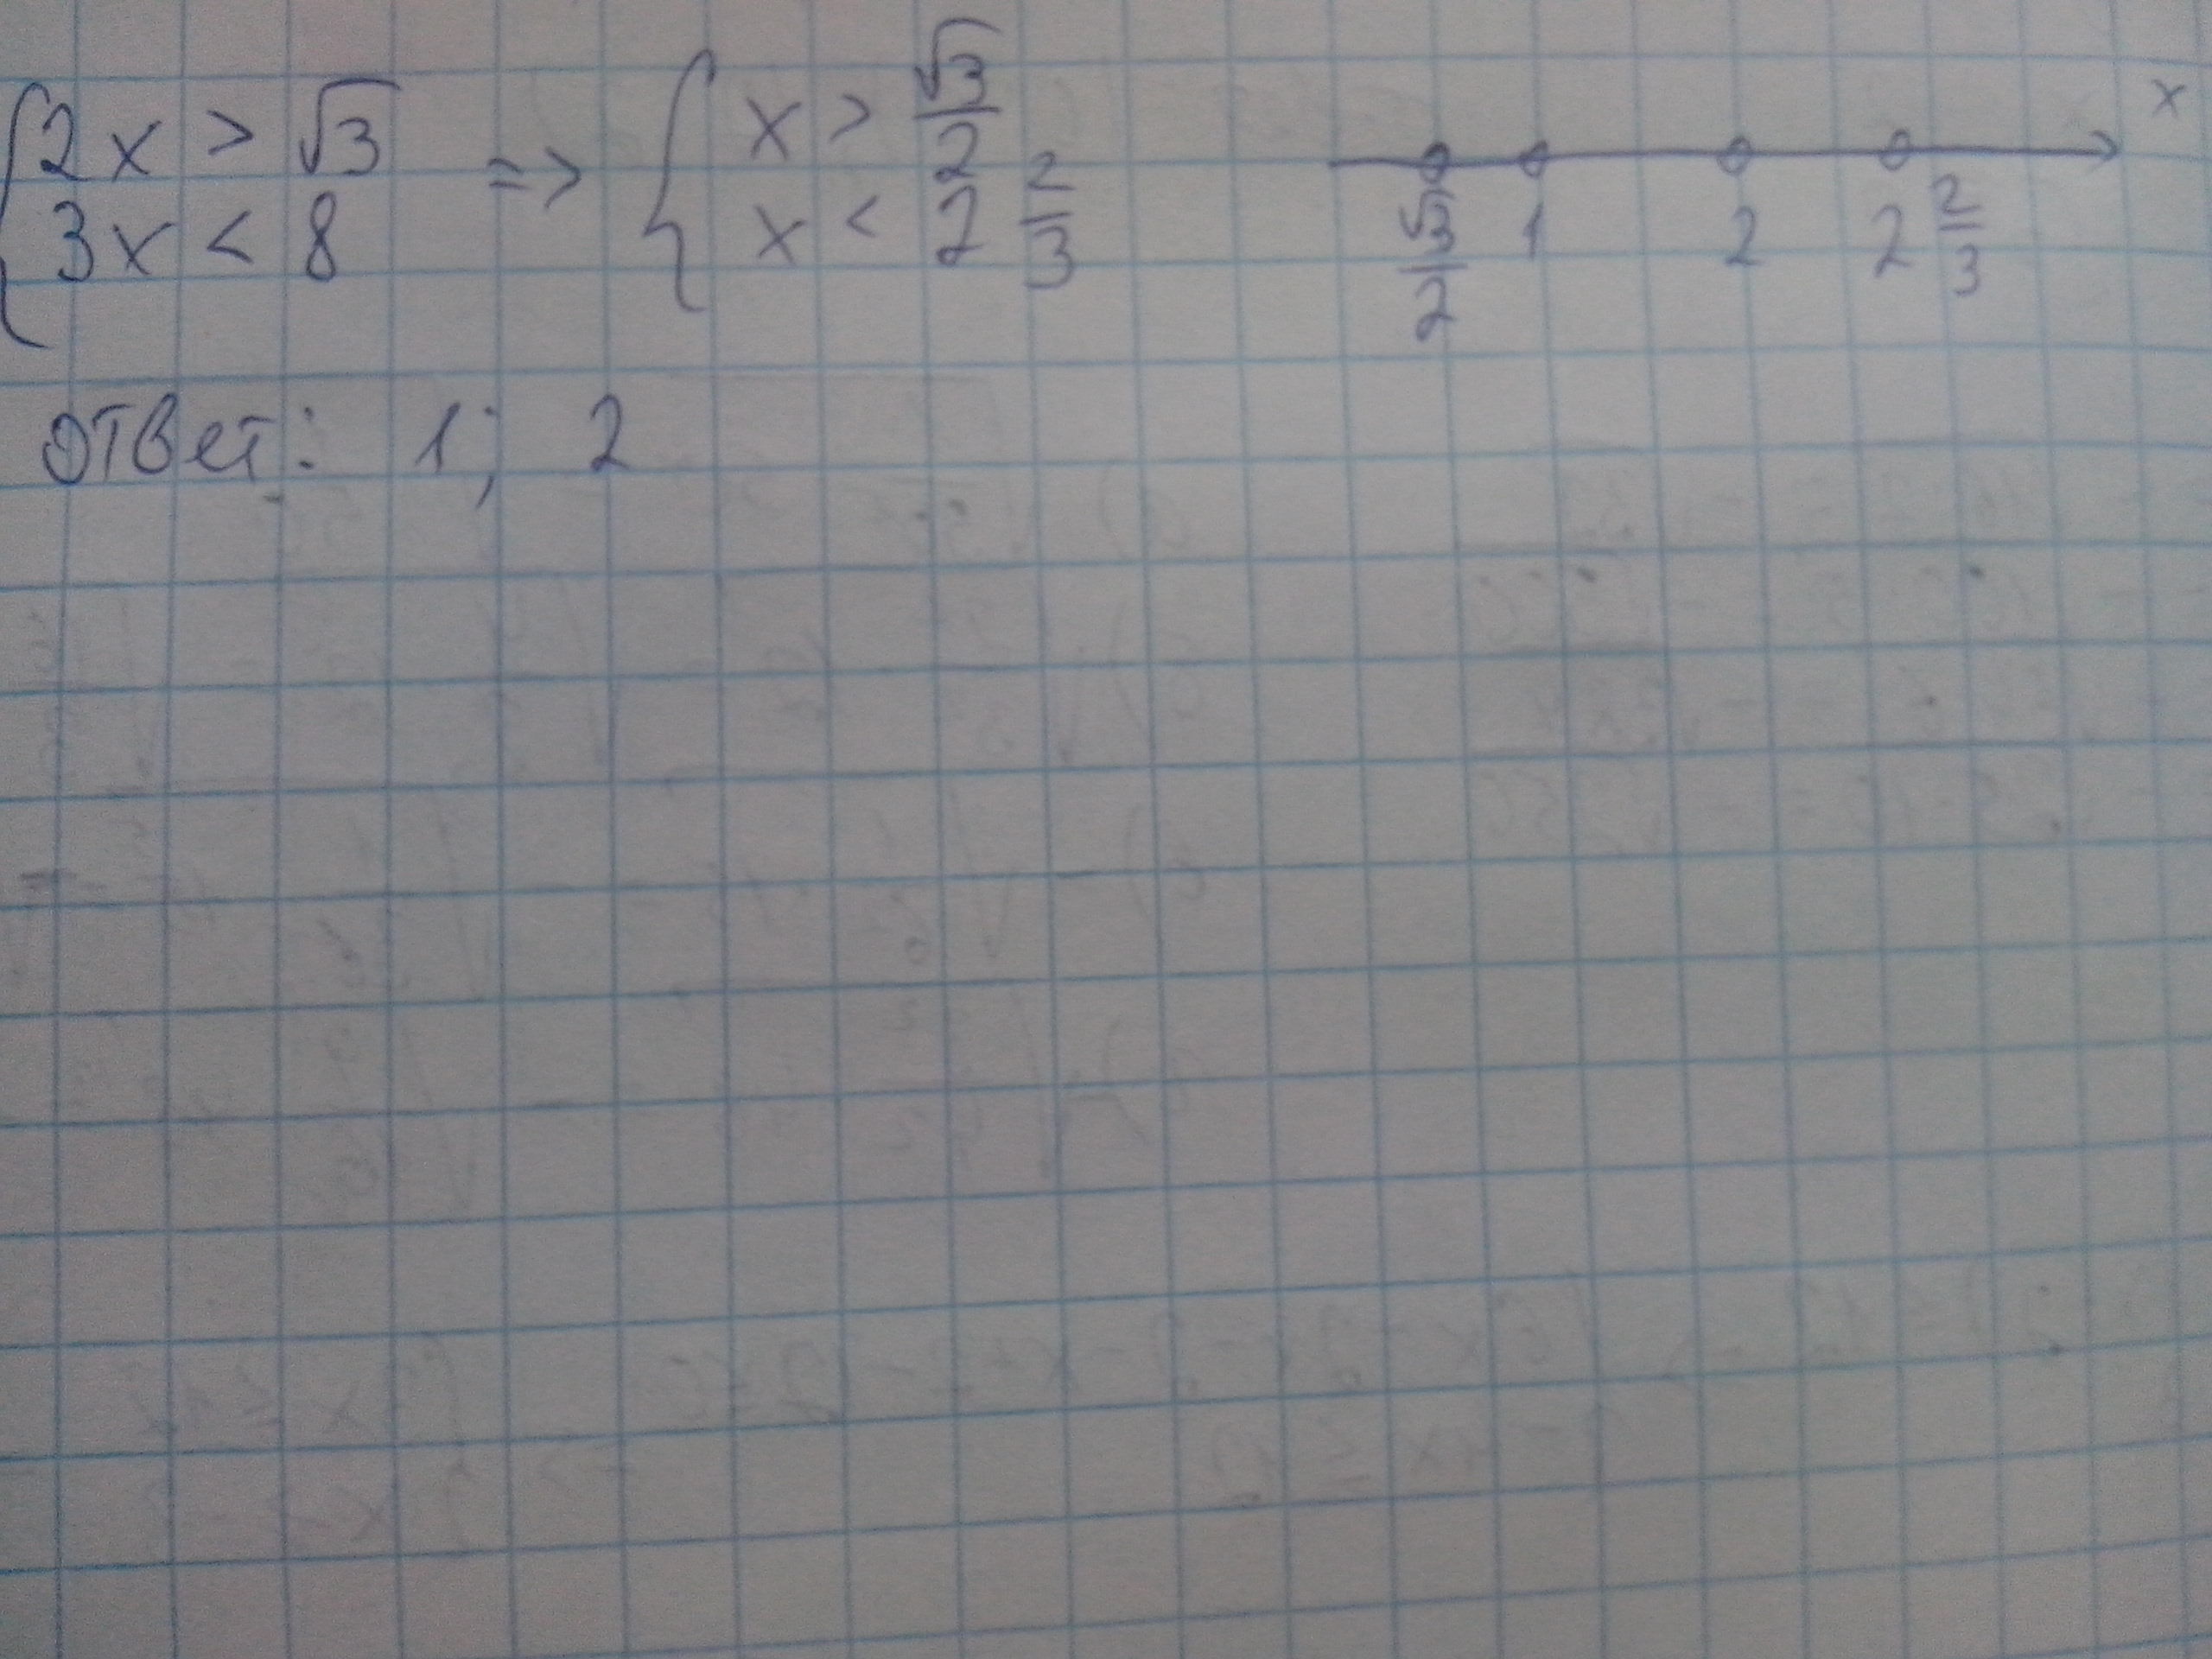 { 2x > √3 => { x > √3/2
{ 3x < 8 { x < 2 2/3
x
√3/2 1 2 2 2/3
Ответ: 1; 2